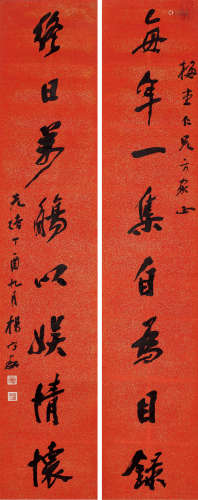 每年一集自為目錄
梅仁兄方家正
終日萬觴以娛情懷
光緒丁酉九月楊守敬